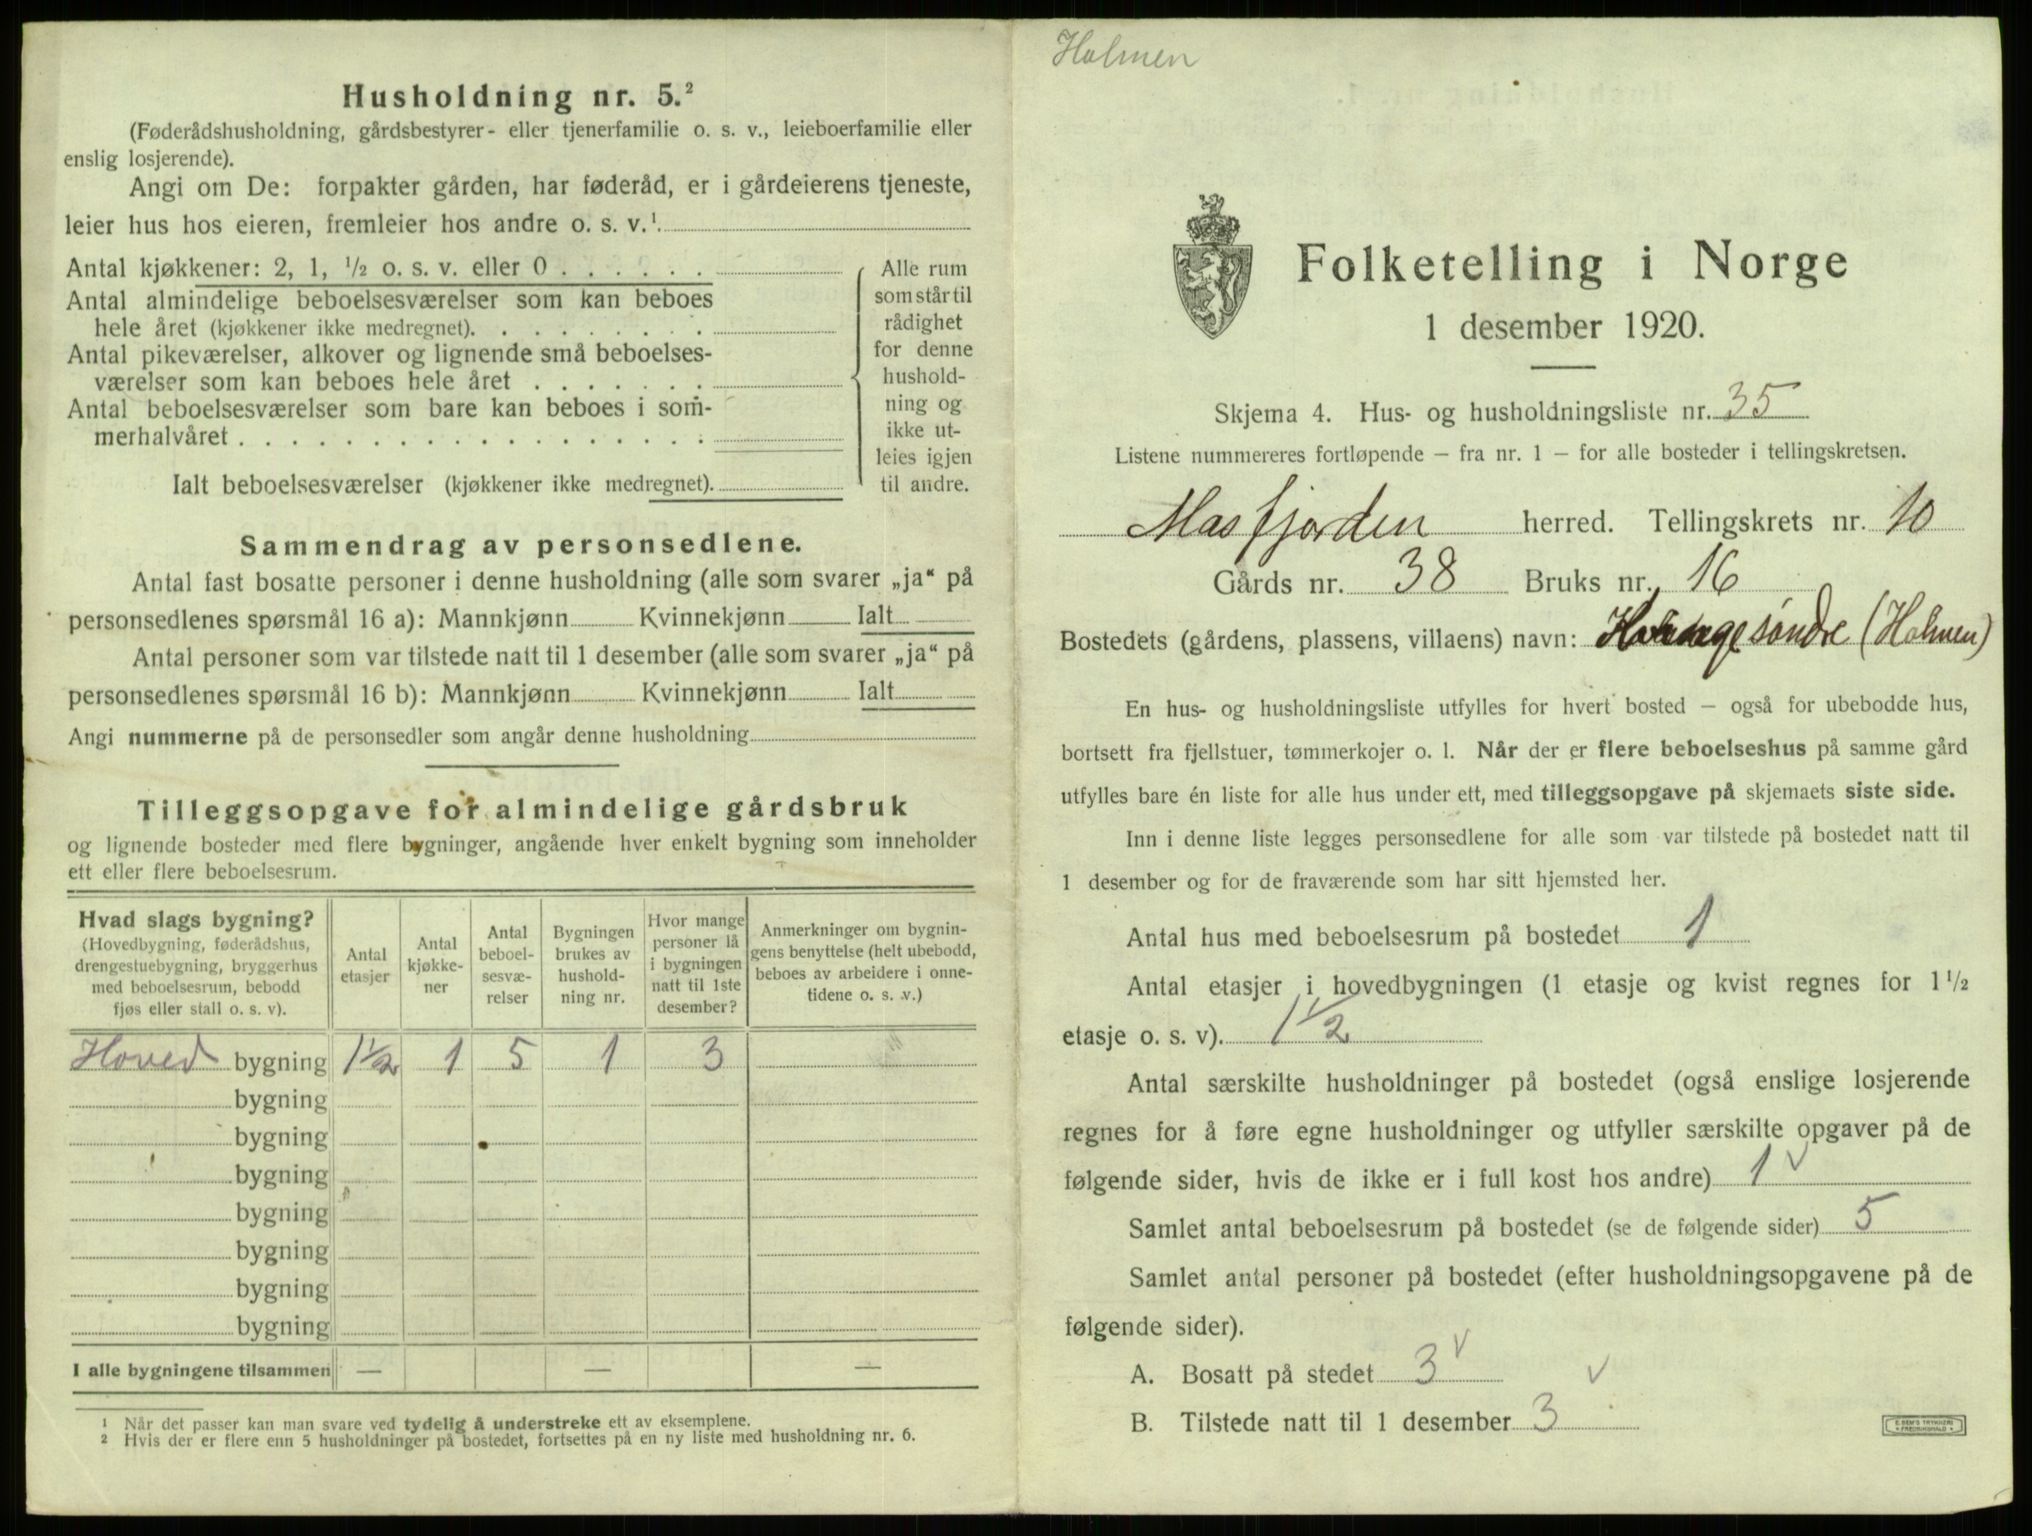 Husholdning nr. 5.²
(Føderådshusholdning, gårdsbestyrer- eller tjenerfamilie o. s. v., leieboerfamilie eller
enslig losjerende).
Angi om De: forpakter gården, har føderåd, er i gårdeierens tjeneste,
leier hus hos eieren, fremleier hos andre o. s. v.¹
Antal kjøkkener: 2, 1, ½ o. s. v. eller 0 . . . . . .
Antal almindelige beboelsesværelser som kan beboes
hele året (kjøkkener ikke medregnet). . . . . . . . .
Antal pikeværelser, alkover og lignende små beboelses-
værelser som kan beboes hele året . . . . . . .
Antal beboelsesværelser som bare kan beboes i som-
merhalvåret . . . . . . . . . . . . . . . . . .
Ialt beboelsesværelser (kjøkkener ikke medregnet).
Alle rum
som står til
rådighet
for denne
hushold-
ning og
ikke ut-
leies igjen
til andre.
Sammendrag av personsedlene.
Antal fast bosatte personer i denne husholdning (alle som svarer „ja“ på
personsedlenes spørsmål 16 a): Mannkjønn Kvinnekjønn Ialt
Antal personer som var tilstede natt til 1 desember (alle som svarer „ja“ på
personsedlenes spørsmål 16 b): Mannkjønn Kvinnekjønn Ialt
Angi nummerne på de personsedler som angår denne husholdning
Tilleggsopgave for almindelige gårdsbruk
og lignende bosteder med flere bygninger, angående hver enkelt bygning som inneholder
ett eller flere beboelsesrum.
Hvad slags bygning?
(Hovedbygning, føderådshus,
drengestuebygning, bryggerhus
med beboelsesrum, bebodd
fjøs eller stall o. s. v).
Antal
etasjer
Antal
kjøkke-
ner
Antal
beboel-
sesvæ-
relser
Bygningen
brukes av
hushold-
ning nr.
Hvor mange
personer lå
i bygningen
natt til 1ste
desember?
Anmerkninger om bygnin-
gens benyttelse (helt ubebodd,
beboes av arbeidere i onne-
tidene o. s. v.)
Hoved bygning 1½ 1 5 1 3
bygning
bygning
bygning
bygning
bygning
bygning
bygning
I alle bygningene tilsammen — — —
¹ Når det passer kan man svare ved tydelig å understreke ett av eksemplene.
² Hvis der er flere enn 5 husholdninger på bostedet, fortsettes på en ny liste med husholdning nr. 6.
Holmen
Folketelling i Norge
1 desember 1920.
Skjema 4. Hus- og husholdningsliste nr. 35
Listene nummereres fortløpende – fra nr. 1 – for alle bosteder i tellingskretsen.
Masfjorden herred. Tellingskrets nr. 10
Gårds nr. 38 Bruks nr. 16
Bostedets (gårdens, plassens, villaens) navn: søndre (Holmen)
En hus- og husholdningsliste utfylles for hvert bosted – også for ubebodde hus,
bortsett fra fjellstuer, tømmerkojer o. l. Når der er flere beboelseshus på samme gård
utfylles bare én liste for alle hus under ett, med tilleggsopgave på skjemaets siste side.
Inn i denne liste legges personsedlene for alle som var tilstede på bostedet natt til
1 desember og for de fraværende som har sitt hjemsted her.
Antal hus med beboelsesrum på bostedet 1
Antal etasjer i hovedbygningen (1 etasje og kvist regnes for 1½
etasje o. s. v). 1½
Antal særskilte husholdninger på bostedet (også enslige losjerende
regnes for å føre egne husholdninger og utfyller særskilte opgaver på de
følgende sider, hvis de ikke er i full kost hos andre) 1 v
Samlet antal beboelsesrum på bostedet (se de følgende sider) 5
Samlet antal personer på bostedet (efter husholdningsopgavene på de
følgende sider).
A. Bosatt på stedet 3 v v
B. Tilstede natt til 1 desember 3
E. SEM'S TRYKKERI
FREDRIKSHALD